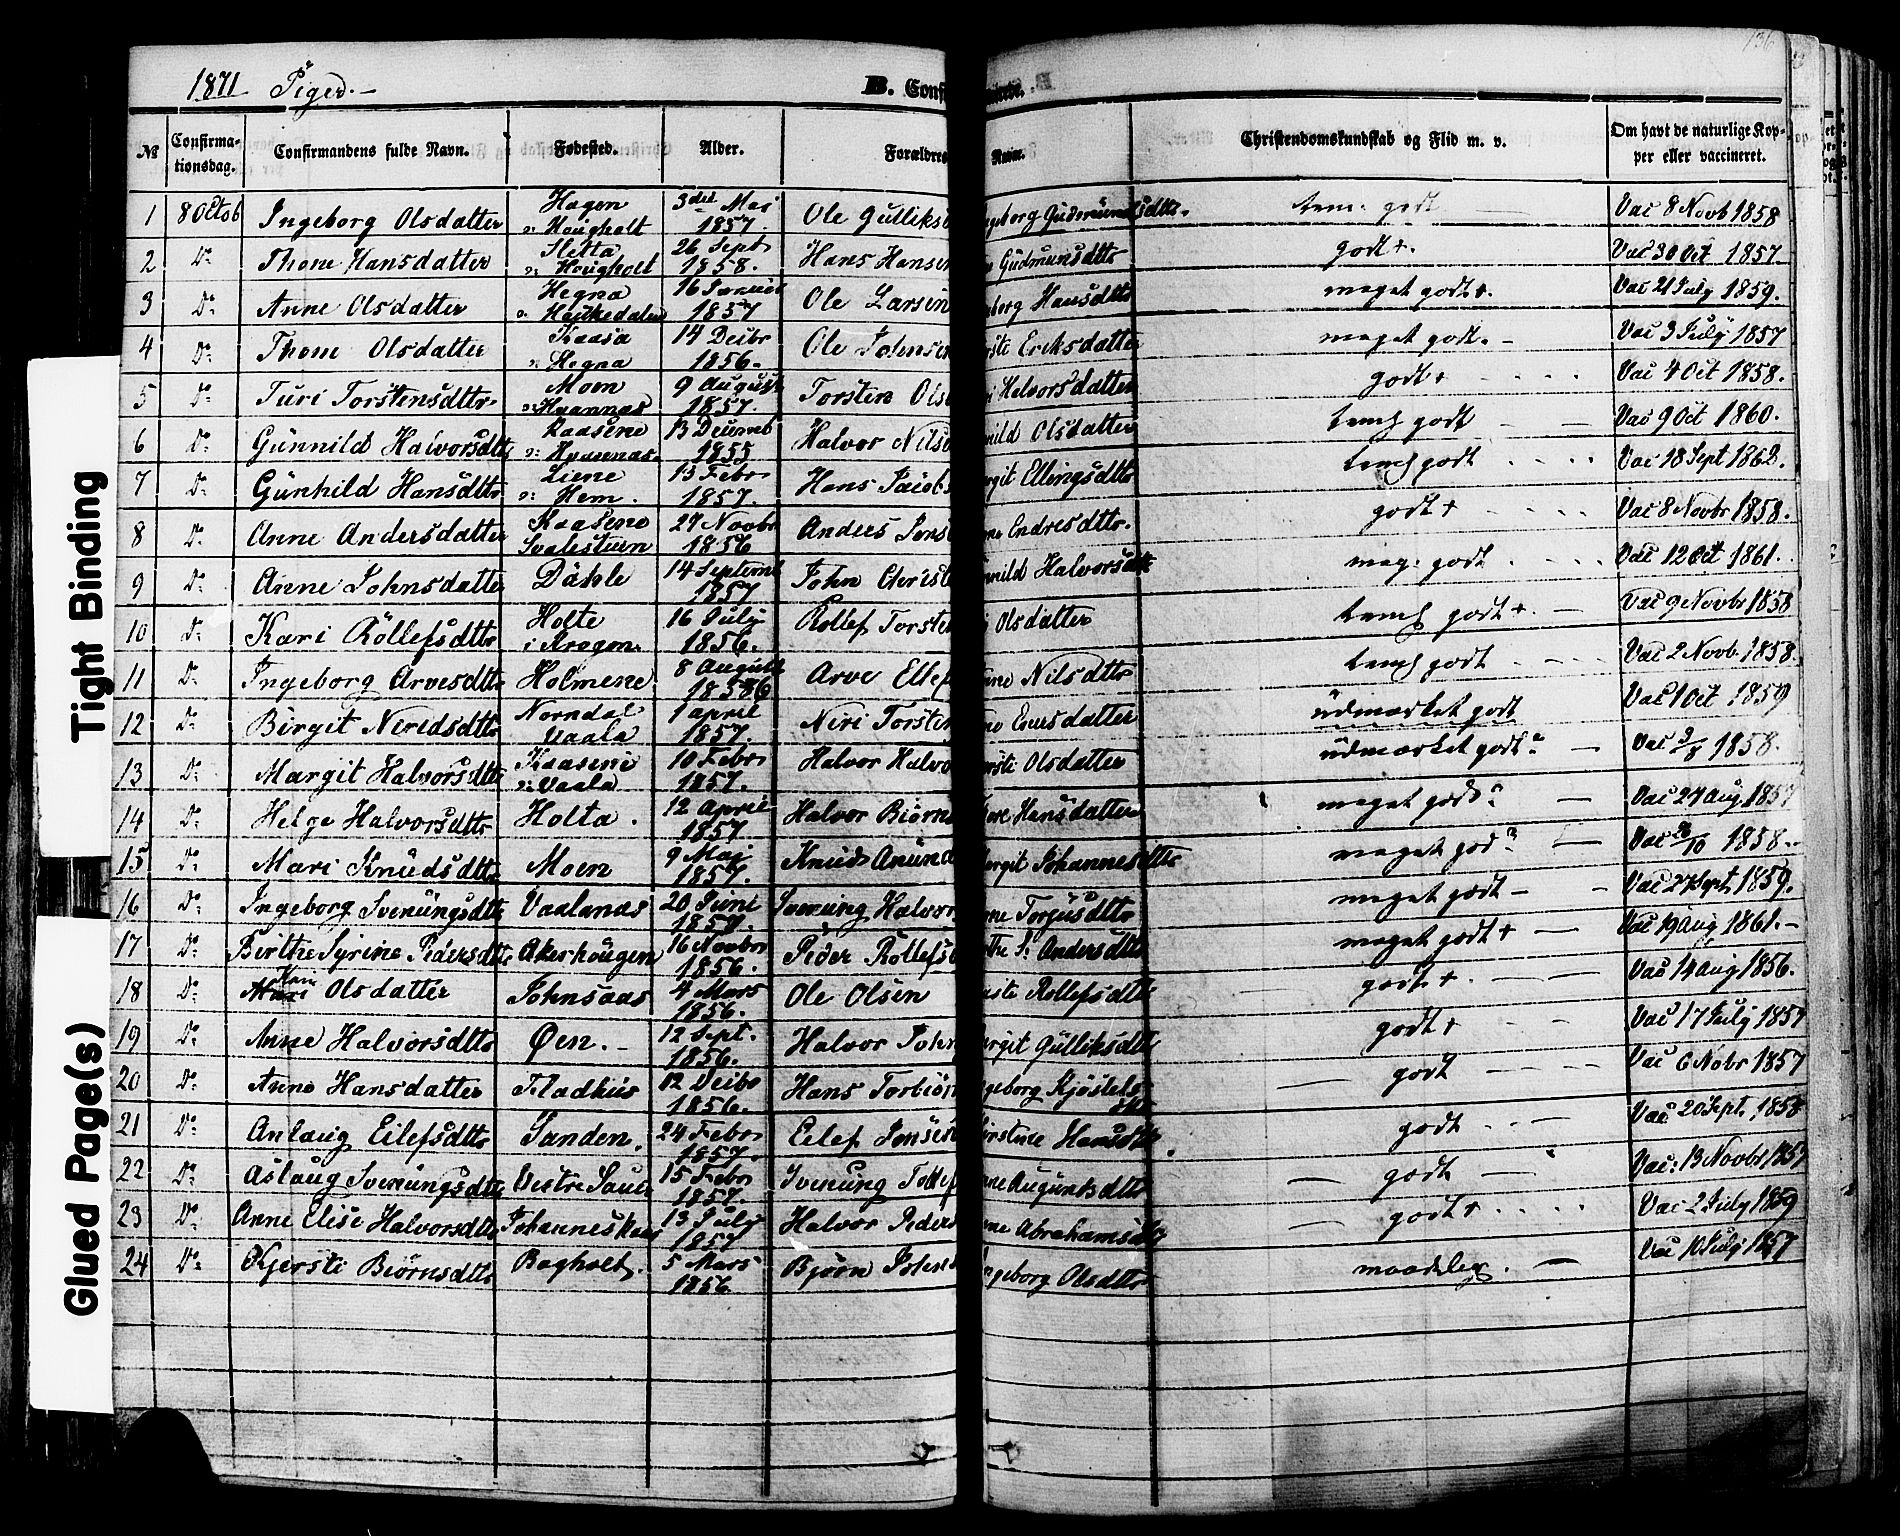 136
1871 Piger.-
B. Conf
№ Confirma-tionsdag. Confirmandens fulde Navn. Fødested. Alder. Forældres Navn. Christendomskundskab og Flid m. v. Om havt de naturlige Kop-per eller vaccineret.
1 8 Octob Ingeborg Olsdatter Hagen Haugholt 3die Mai 1857. Ole Gulliks geborg Gudmundsdttr. tem. godt Vac 8 Novb 1858
2 Do Thone Hansdatter Sletta Hougholt 26 Sept 1858. Hans Hansen Gudmunsdttr godt+. Vac 30 Oct 1857.
3 Do Anne Olsdatter Hegna 16 Januar 1857 Ole Larsen borg Hansdttr meget godt+. Vac 21 July 1859.
4 Do Thone Olsdatter Kaasa Hegna 14 Decbr 1856. Ole Johnsen rste Eriksdatter meget godt. - Vac 3 July 1857
5 Do Turi Torstensdttr Moen Hvannas 9 August 1857. Torsten Ols Halvorsdatter godt+ Vac 4 Oct 1858.
6 Do Gunnild Halvorsdttr Kaasene 13 Decemb 1855 Halvor Nils nild Olsdatter teml godt Vac 9 Oct 1860.
7 Do Gunhild Hansdttr Liene Hem. 13 Febr 1857. Hans Jacobs rgit Ellingsdttr teml godt Vac 18 Sept 1862.
8 Do Anne Andersdatter Kaasene Svalestuen 27 Novbr 1856 Anders Jens ne Endresdttr. godt+ Vac 8 Novbr 1858.
9 Do Anne Johnsdatter Dahle 14 Septemb 1857 John Christ nild Halvorsdtt meg. godt Vac 12 Oct 1861.
10 Do Kari Rollefsdttr Holte i Krogen. 16 July 1856. Rollef Torsten Olsdatter teml godt+. Vac 9 Novbr 1858
11 Do Ingeborg Arvesdttr Holmene 8 August 1856 Arve Ellef ne Nilsdttr teml godt Vac 2 Novb. 1858.
12 Do Birgit Neridsdttr Norndal Vaala 1 April 1857. Neri Torsten ne Eversdatter udmærket godt Vac 1 Oct 1859
13 Do Margit Halvorsdttr Kaasene Vaala 10 Febr 1857. Halvor Halvo rsti Olsdatter udmærket godt Vac 3/8 1858.
14 Do Helge Halvorsdttr Holta. 12 April 1857 Halvor Biørns ore Hansdatter meget godt Vac 27 Aug 1857
15 Do Mari Knudsdttr Moen 9 Mai 1857. Knud Anund rgit Johannesdttr meget god Vac /10 1858.
16 Do Ingeborg Svenungsdttr Vaalanas 20 Juni 1857. Svenung Halvor ne Torjusdttr meget godt - Vac 27 Sept. 1859.
17 Do Birthe Syrine Pedersdttr Akerhougen 16 Novbr 1856. Peder Rollefs the S. Andersdttr meget godt + Vac 19 Aug 1861.
18 Do Kari Olsdatter Johnsaas 4 Mars 1856. Ole Olsen ste Rollefsdttr godt+. Vac 14 Aug 1856.
19 Do Anne Halvorsdttr Øen. - 12 Sept. 1856. Halvor John rgit Gulliksdtt godt+ Vac 17 July 1857
20 Do Anne Hansdatter Fladhus 12 Decbr 1856. Hans Torbiørn geborg Kjøstels dttr godt Vac 6 Nobr 1857
21 Do Anlaug Eilefsdttr Sanden. 24 Febr 1857. Eilef Jonsen irstine Hansdttr. godt Vac 20 Sept. 1858
22 Do Aslaug Svenungsdttr Vestre Saue 15 Febr 1857. Svenung Tollef ne Augunsdttr godt Vac: 13 Novbr 1857
23 Do Anne Elise Halvorsdttr Johanneskaas 13 July 1857 Halvor Peders ne Abrahamsdtt godt+ Vac 2 July 1859
24 Do Kjersti Biørnsdttr Bogholt. 5 Mars 1856. Bjørn Johns geborg Olsdttr maadelig. Vac 10 July 1857
Tight Binding
Glued Page(s)